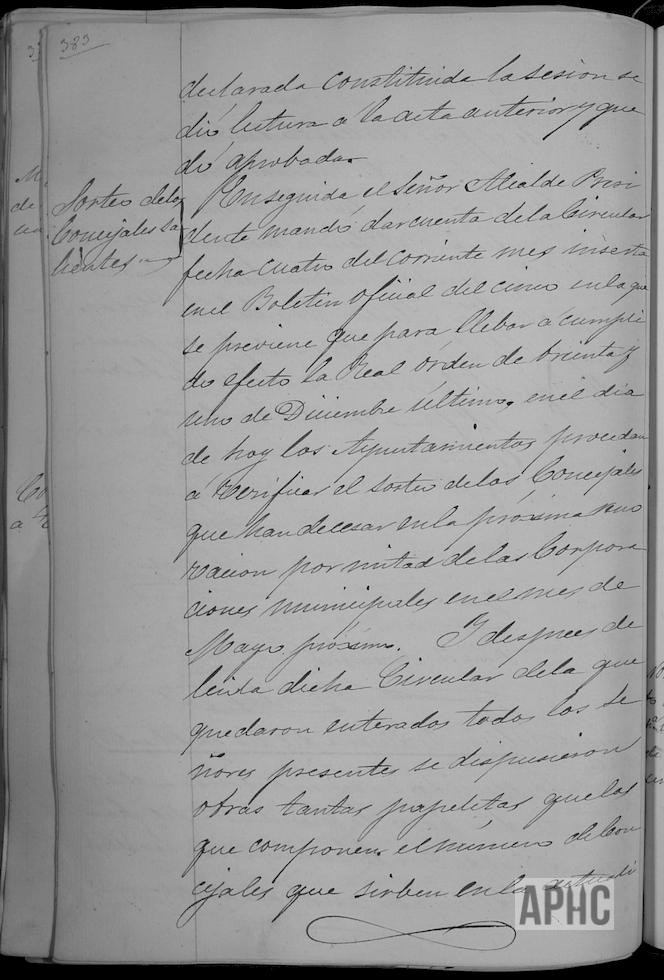 383
declarada constituida la sesion se
dió lectura a la acta anterior y que
dó aprobada.
Sorteo de los
Concejales sa
lientes
Enseguida el Señor Alcalde Presi
dente mandó dar cuenta de la Circular
fecha cuatro del corriente mes inserta
en el Boletin oficial del cinco en la que
se previene que para llebar a cumpli
do efecto la Real órden de treinta y
uno de Diciembre último, en el dia
de hoy los Ayuntamientos procedan
á verificar el sorteo de los Concejales
que han de cesar en la próxima reno
vacion por mitad de las Corpora
ciones municipales en el mes de
Mayo próximo. I despues de
leida dicha Circular de la que
quedaron enterados todos los Se
ñores presentes se dispusieron
otras tantas papeletas que los
que componen el número de Con
cejales que sirben en la actuali
APHC